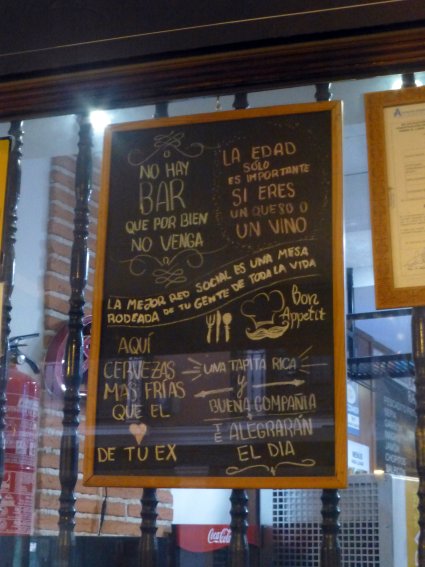 NO HAY
BAR
QUE POR BIEN
NO VENGA
LA EDAD
SÓLO
ES IMPORTANTE
SI ERES
UN QUESO O
UN VINO
LA MEJOR RED SOCIAL ES UNA MESA
RODEADA DE TU GENTE DE TODA LA VIDA
Bon
Appetit
AQUÍ
CERVEZAS
MAS FRÍAS
QUE EL
DE TU EX
UNA TAPITA RICA
Y
BUENA COMPAÑIA
TE ALEGRARÁN
EL DÍA
Coca-Cola